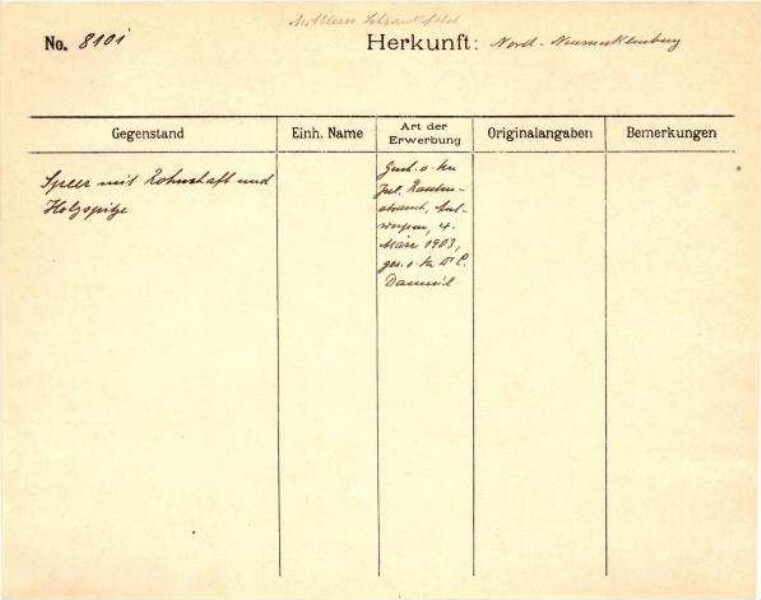 Mittlerer Schrankpfeiler
No. 8101 Herkunft: Nord-Neumecklenburg
Gegenstand Einh. Name Art der Erwerbung Originalangaben Bemerkungen
Speer mit Rohrschaft und
Holzspitze
Gesch. v. Hn
Jul. Rauten-
strauch, Ant-
werpen, 4.
März 1903,
ges. v. Hn Dr C.
Danneil